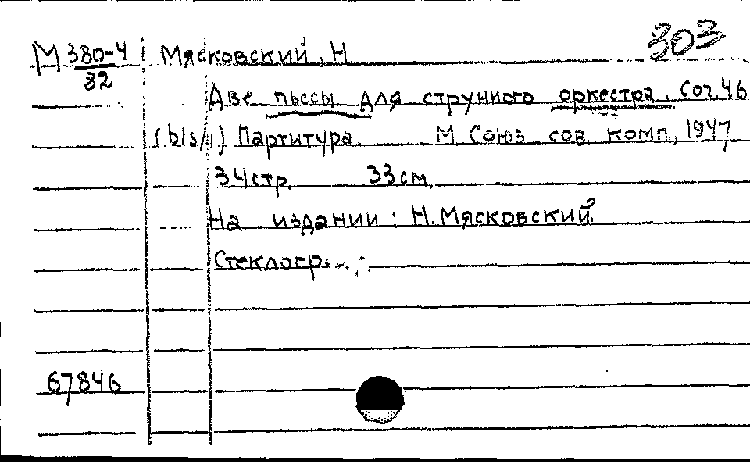 303
М 380-4 Мясковский, Н
32
Две пьесы для струнного оркестра. Соч. 46
(bls/1) Партитура. М. Союз сов. комп., 1947,
34 стр. 33 см.
На издании: Н. Мясковский.
Стеклогр.
67846